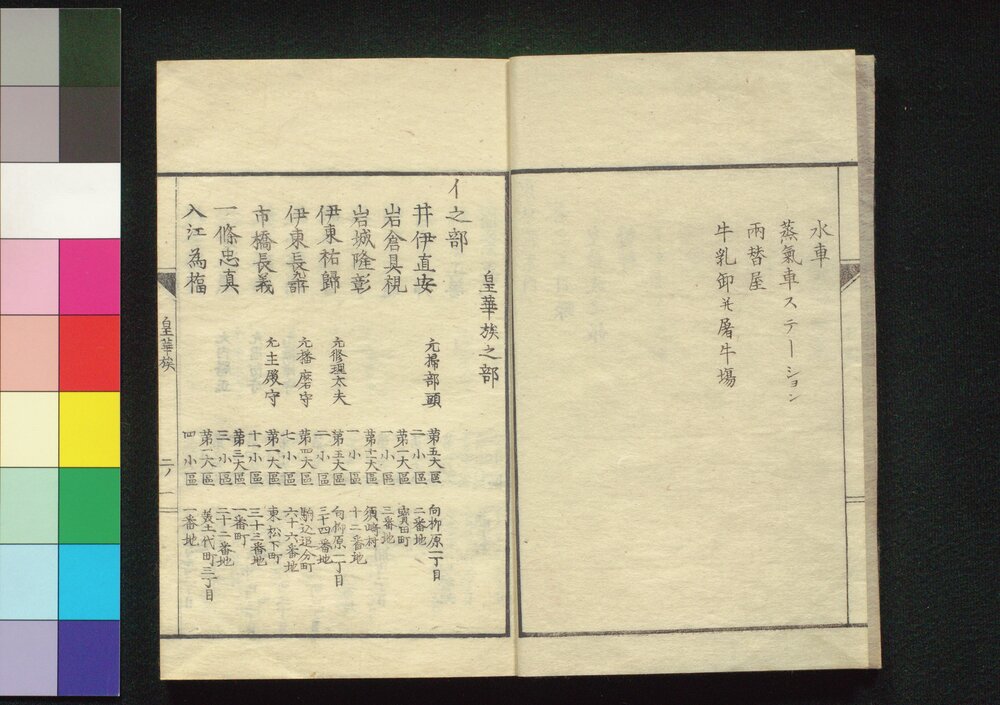 水車
蒸氣車ステーション
兩替屋
牛乳卸并屠牛場
皇華族之部
イ之部
井伊直安 元掃部頭 第五大區二小區 向柳原一丁目二番地
岩倉具視 第一大區一小區 寳田町三番地
岩城隆彰 第十一大區一小區 須崎村十二番地
伊東祐歸 元修理太夫 第五大區二小區 向柳原二丁目三十四番地
伊東長 元播磨守 第四大區七小區 駒込追分町六十六番地
市橋長義 元主殿守 第一大區十一小區 東松下町三十三番地
一條忠貞 第三大區三小區 一番町二十二番地
入江為福 第一大區四小區 三丁目一番地
皇華族
二ノ一